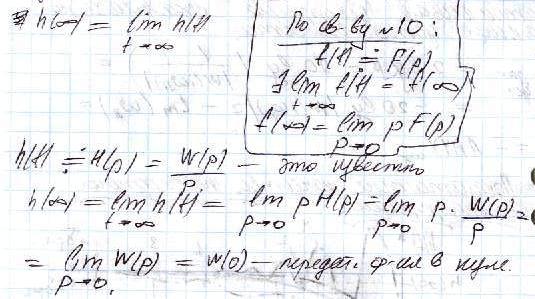 h(∞) = lim h(t)
t→∞
По св-ву №10:
f(t) ≓ F(p)
∃ lim f(t) = f(∞)
t→∞
f(∞) = lim p F(p)
p→0
h(t) ≓ H(p) = W(p)/p — это известно
h(∞) = lim h(t) = lim p H(p) = lim p · W(p)/p =
t→∞ p→0 p→0
= lim W(p) = W(0) — передат. ф-ия в нуле.
p→0